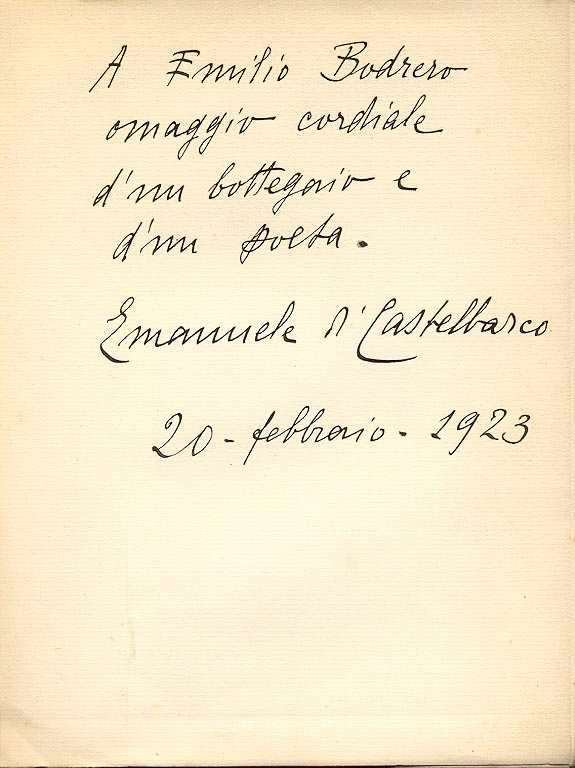 A Emilio Bodrero
omaggio cordiale
d'un bottegaio e
d'un poeta.
Emanuele di Castelbarco
20 - febbraio - 1923